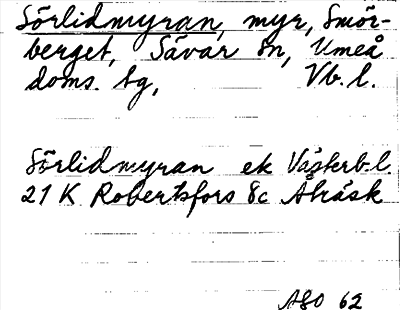 Sörlidmyran, myr, Smör-
berget, Sävar sn, Umeå
doms. tg, Vb. l.
Sörlidmyran ek Västerb.l.
21 K Robertsfors 8c Åträsk
ASO 62